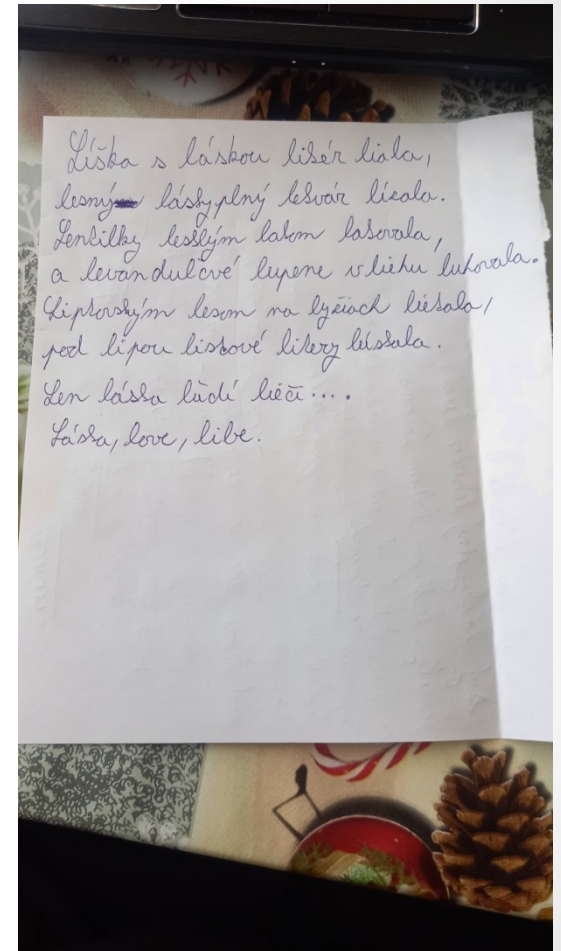 Líška s láskou likér liala,
lesný láskyplný lekvár lízala.
Lentilky lesklým lakom lakovala,
a levanduľové lupene v liehu luhovala.
Liptovským lesom na lyžiach lietala,
pod lipou listové litery lúskala.
Len láska ľudí lieči....
Láska, love, libe.